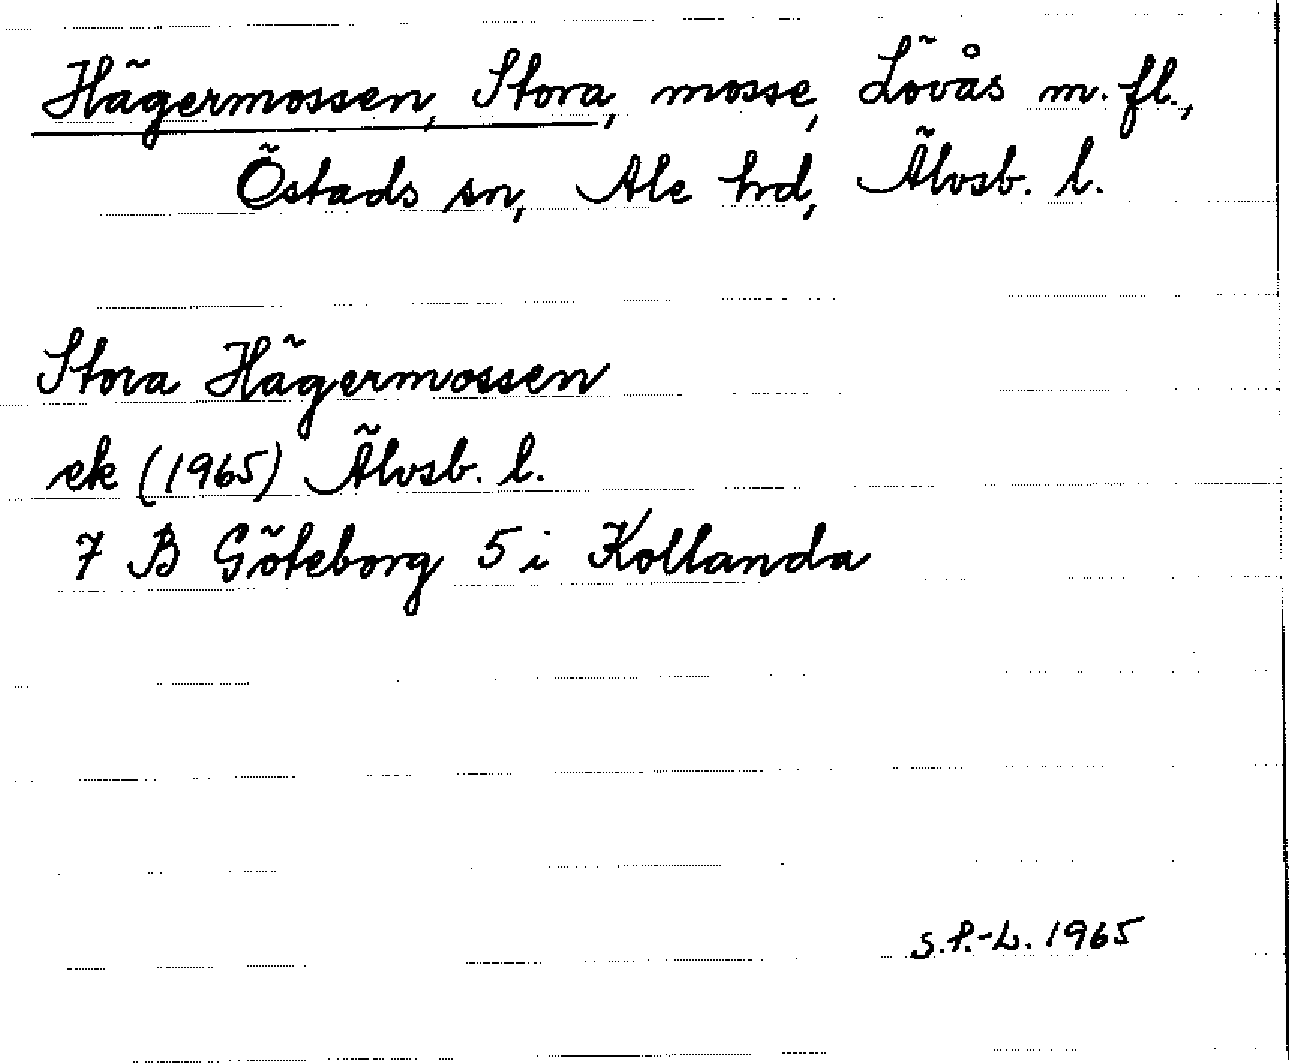 Hägermossen, Stora, mosse, Lövås m. fl.,
Östads sn, Ale hrd, Älvsb. l.
Stora Hägermossen
ek (1965) Älvsb. l.
7 B Göteborg 5 i Kollanda
S.P.-L. 1965